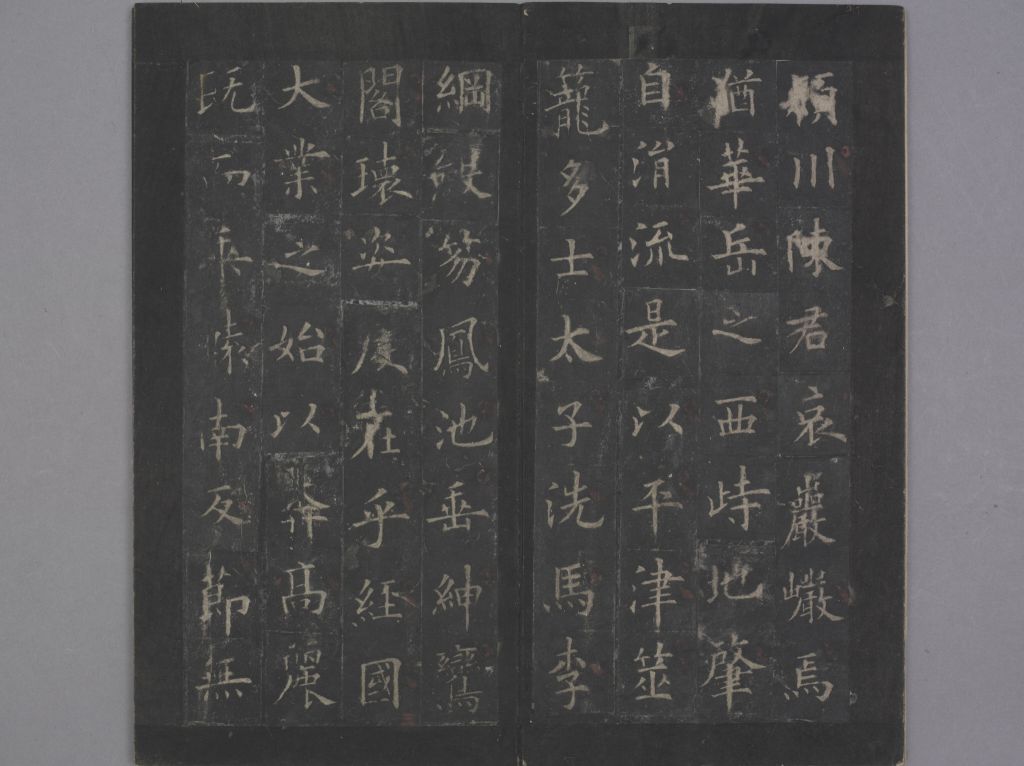 頴川陳君哀巖巘焉
猶華岳之西峙地肇
自涓流是以平津筮
籠多士太子洗馬李
綱笏鳳池垂紳鸞
閣瓌姿度乎經國
大業之始以高麗
既而南反節無